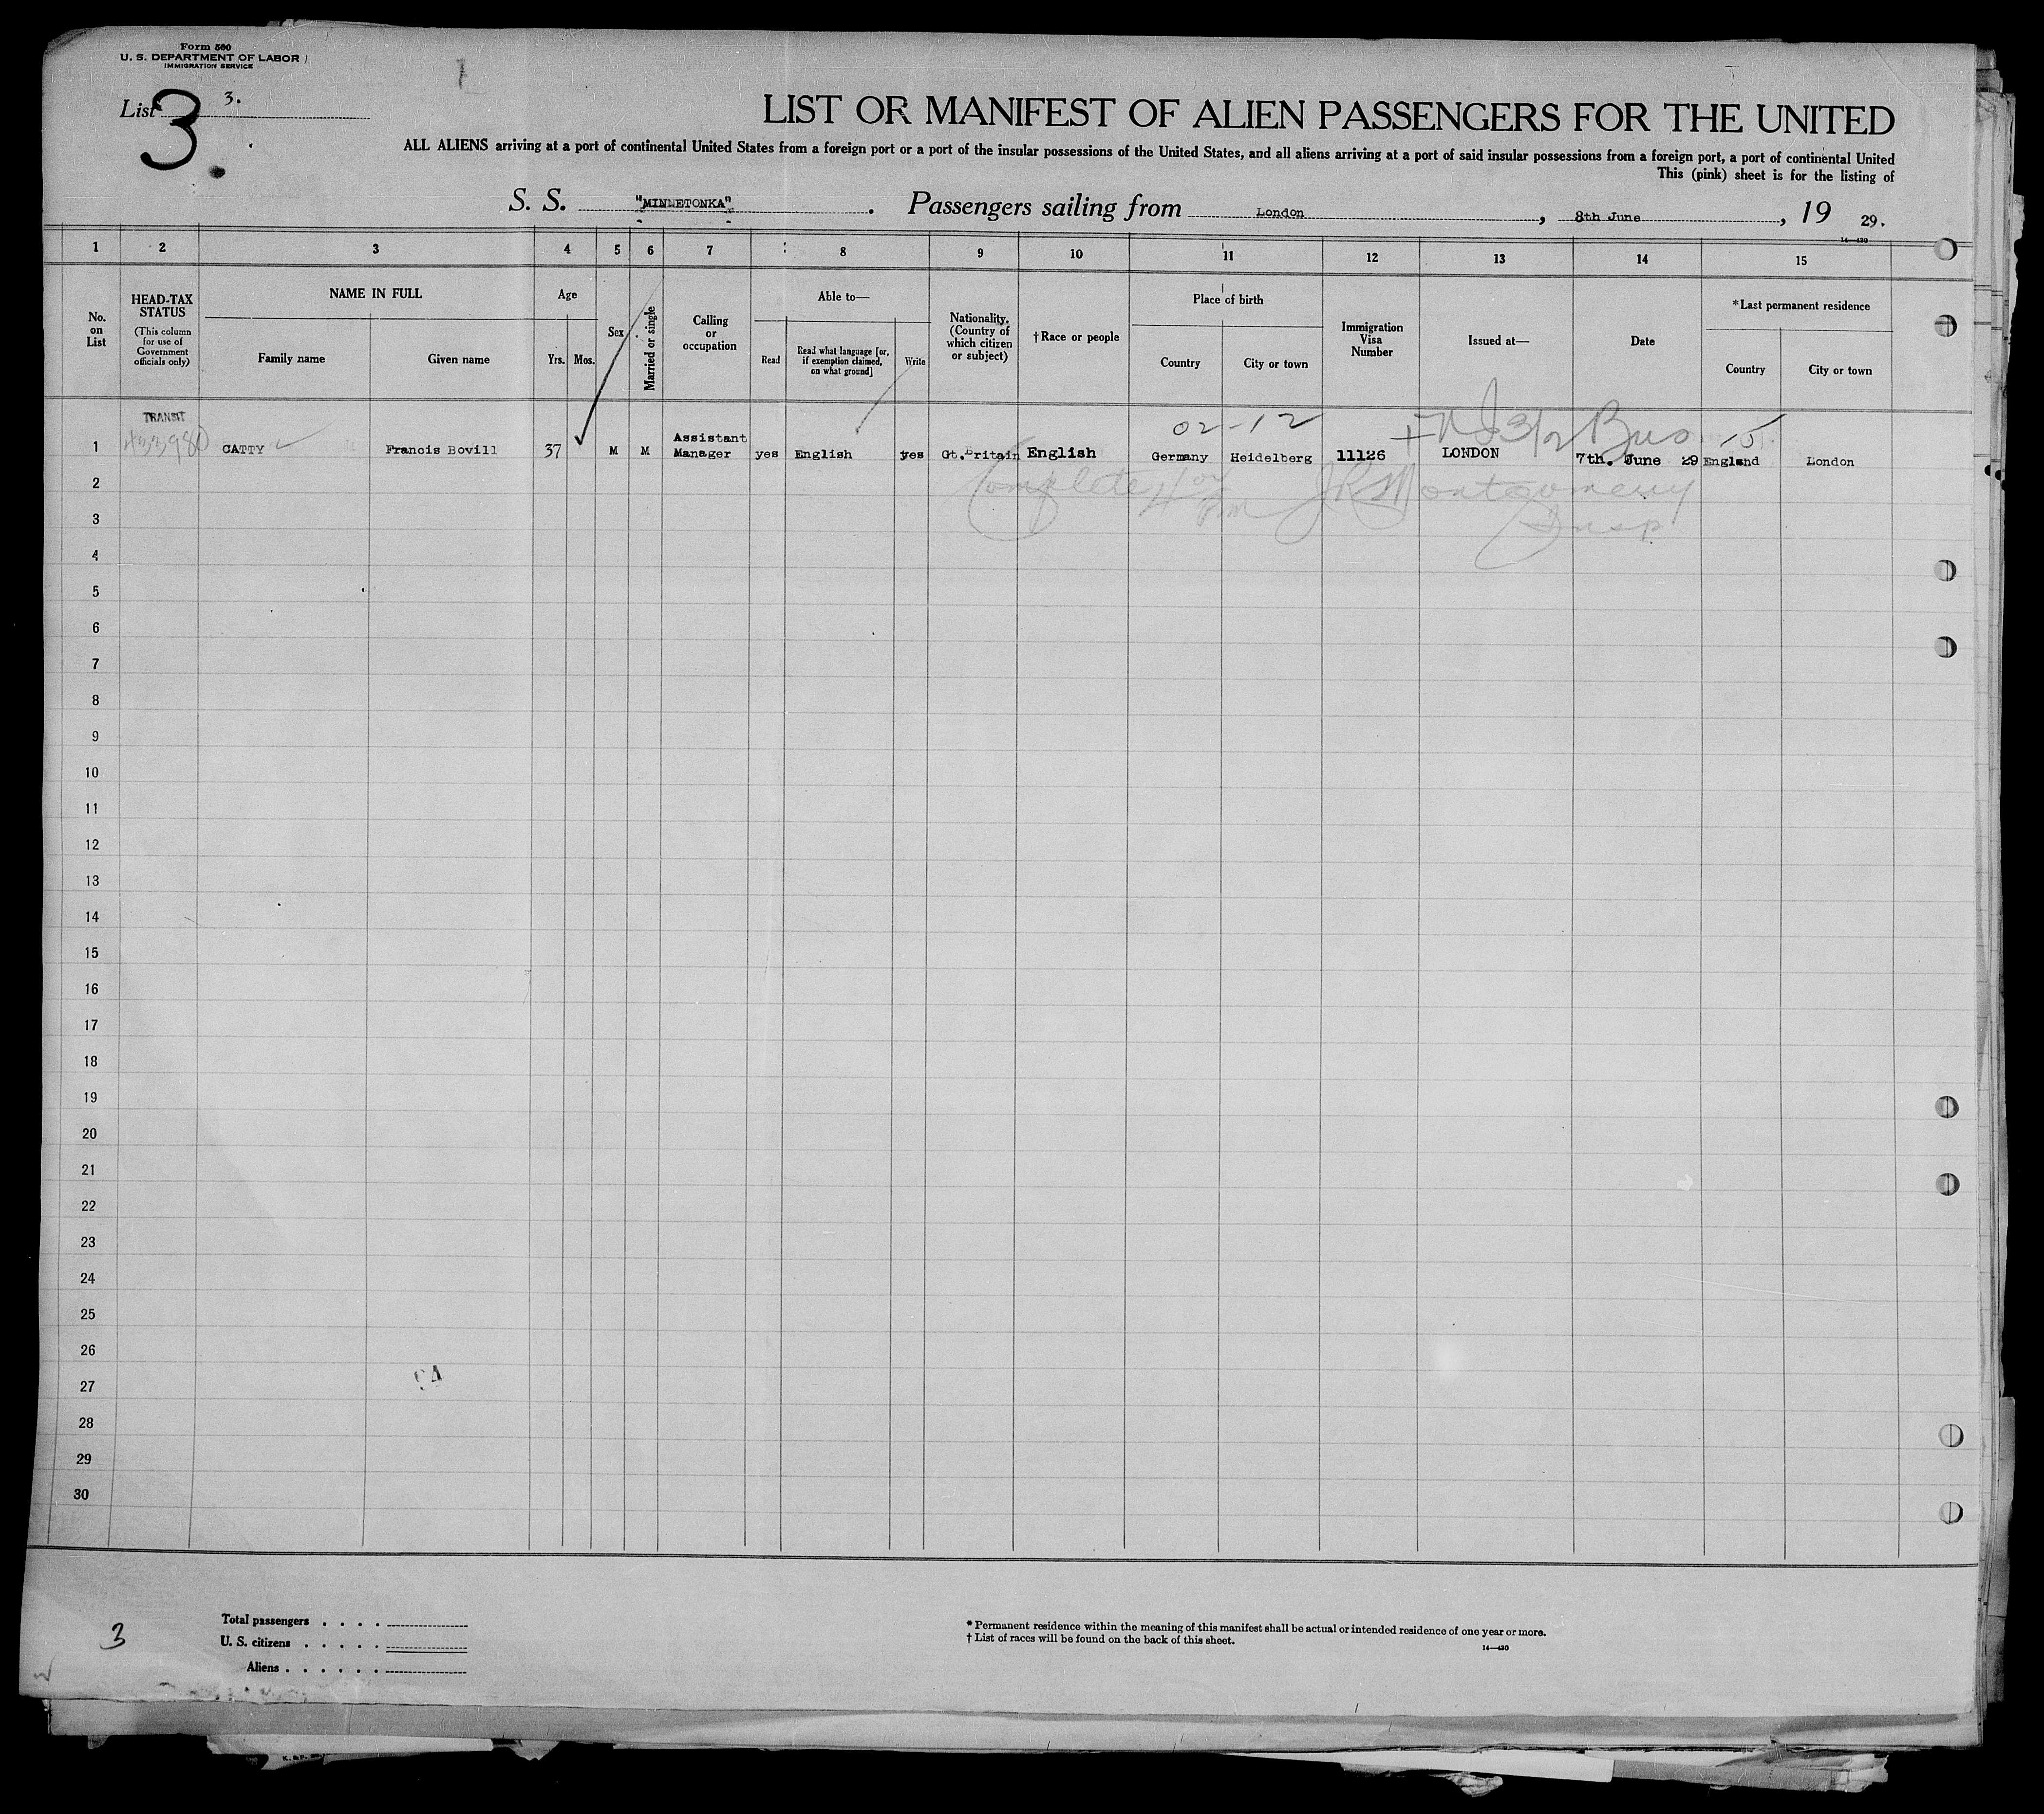 Form 500
U. S. DEPARTMENT OF LABOR
IMMIGRATION SERVICE
List 3.
3.
LIST OR MANIFEST OF ALIEN PASSENGERS FOR THE UNITED
ALL ALIENS arriving at a port of continental United States from a foreign port or a port of the insular possessions of the United States, and all aliens arriving at a port of said insular possessions from a foreign port, a port of continental United
This (pink) sheet is for the listing of
S. S. "MINNETONKA". Passengers sailing from London, 8th June, 19 29.
14—430
1 2 3 4 5 6 7 8 9 10 11 12 13 14 15
No. on List
HEAD-TAX STATUS
(This column for use of Government officials only)
NAME IN FULL
Family name
Given name
Age
Yrs.
Mos.
Sex
Married or single
Calling or occupation
Able to—
Read
Read what language [or, if exemption claimed, on what ground]
Write
Nationality. (Country of which citizen or subject)
†Race or people
Place of birth
Country
City or town
Immigration Visa Number
Issued at—
Date
*Last permanent residence
Country
City or town
TRANSIT
02-12
Bus
1 CATTY Francis Bovill 37 M M Assistant Manager yes English yes Gt.Britain English Germany Heidelberg 11126 LONDON 7th. June 29 England London
Complete J R Montgomery
Insp
2
3
4
5
6
7
8
9
10
11
12
13
14
15
16
17
18
19
20
21
22
23
24
25
26
27
28
29
30
3
Total passengers . . . .
U. S. citizens . . . . .
Aliens . . . . . .
* Permanent residence within the meaning of this manifest shall be actual or intended residence of one year or more.
† List of races will be found on the back of this sheet.
14—430